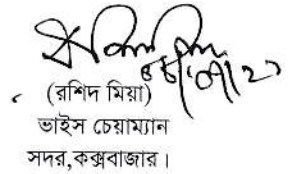 (রশিদ মিয়া)
ভাইস চেয়াম্যান
সদর,কক্সবাজার।